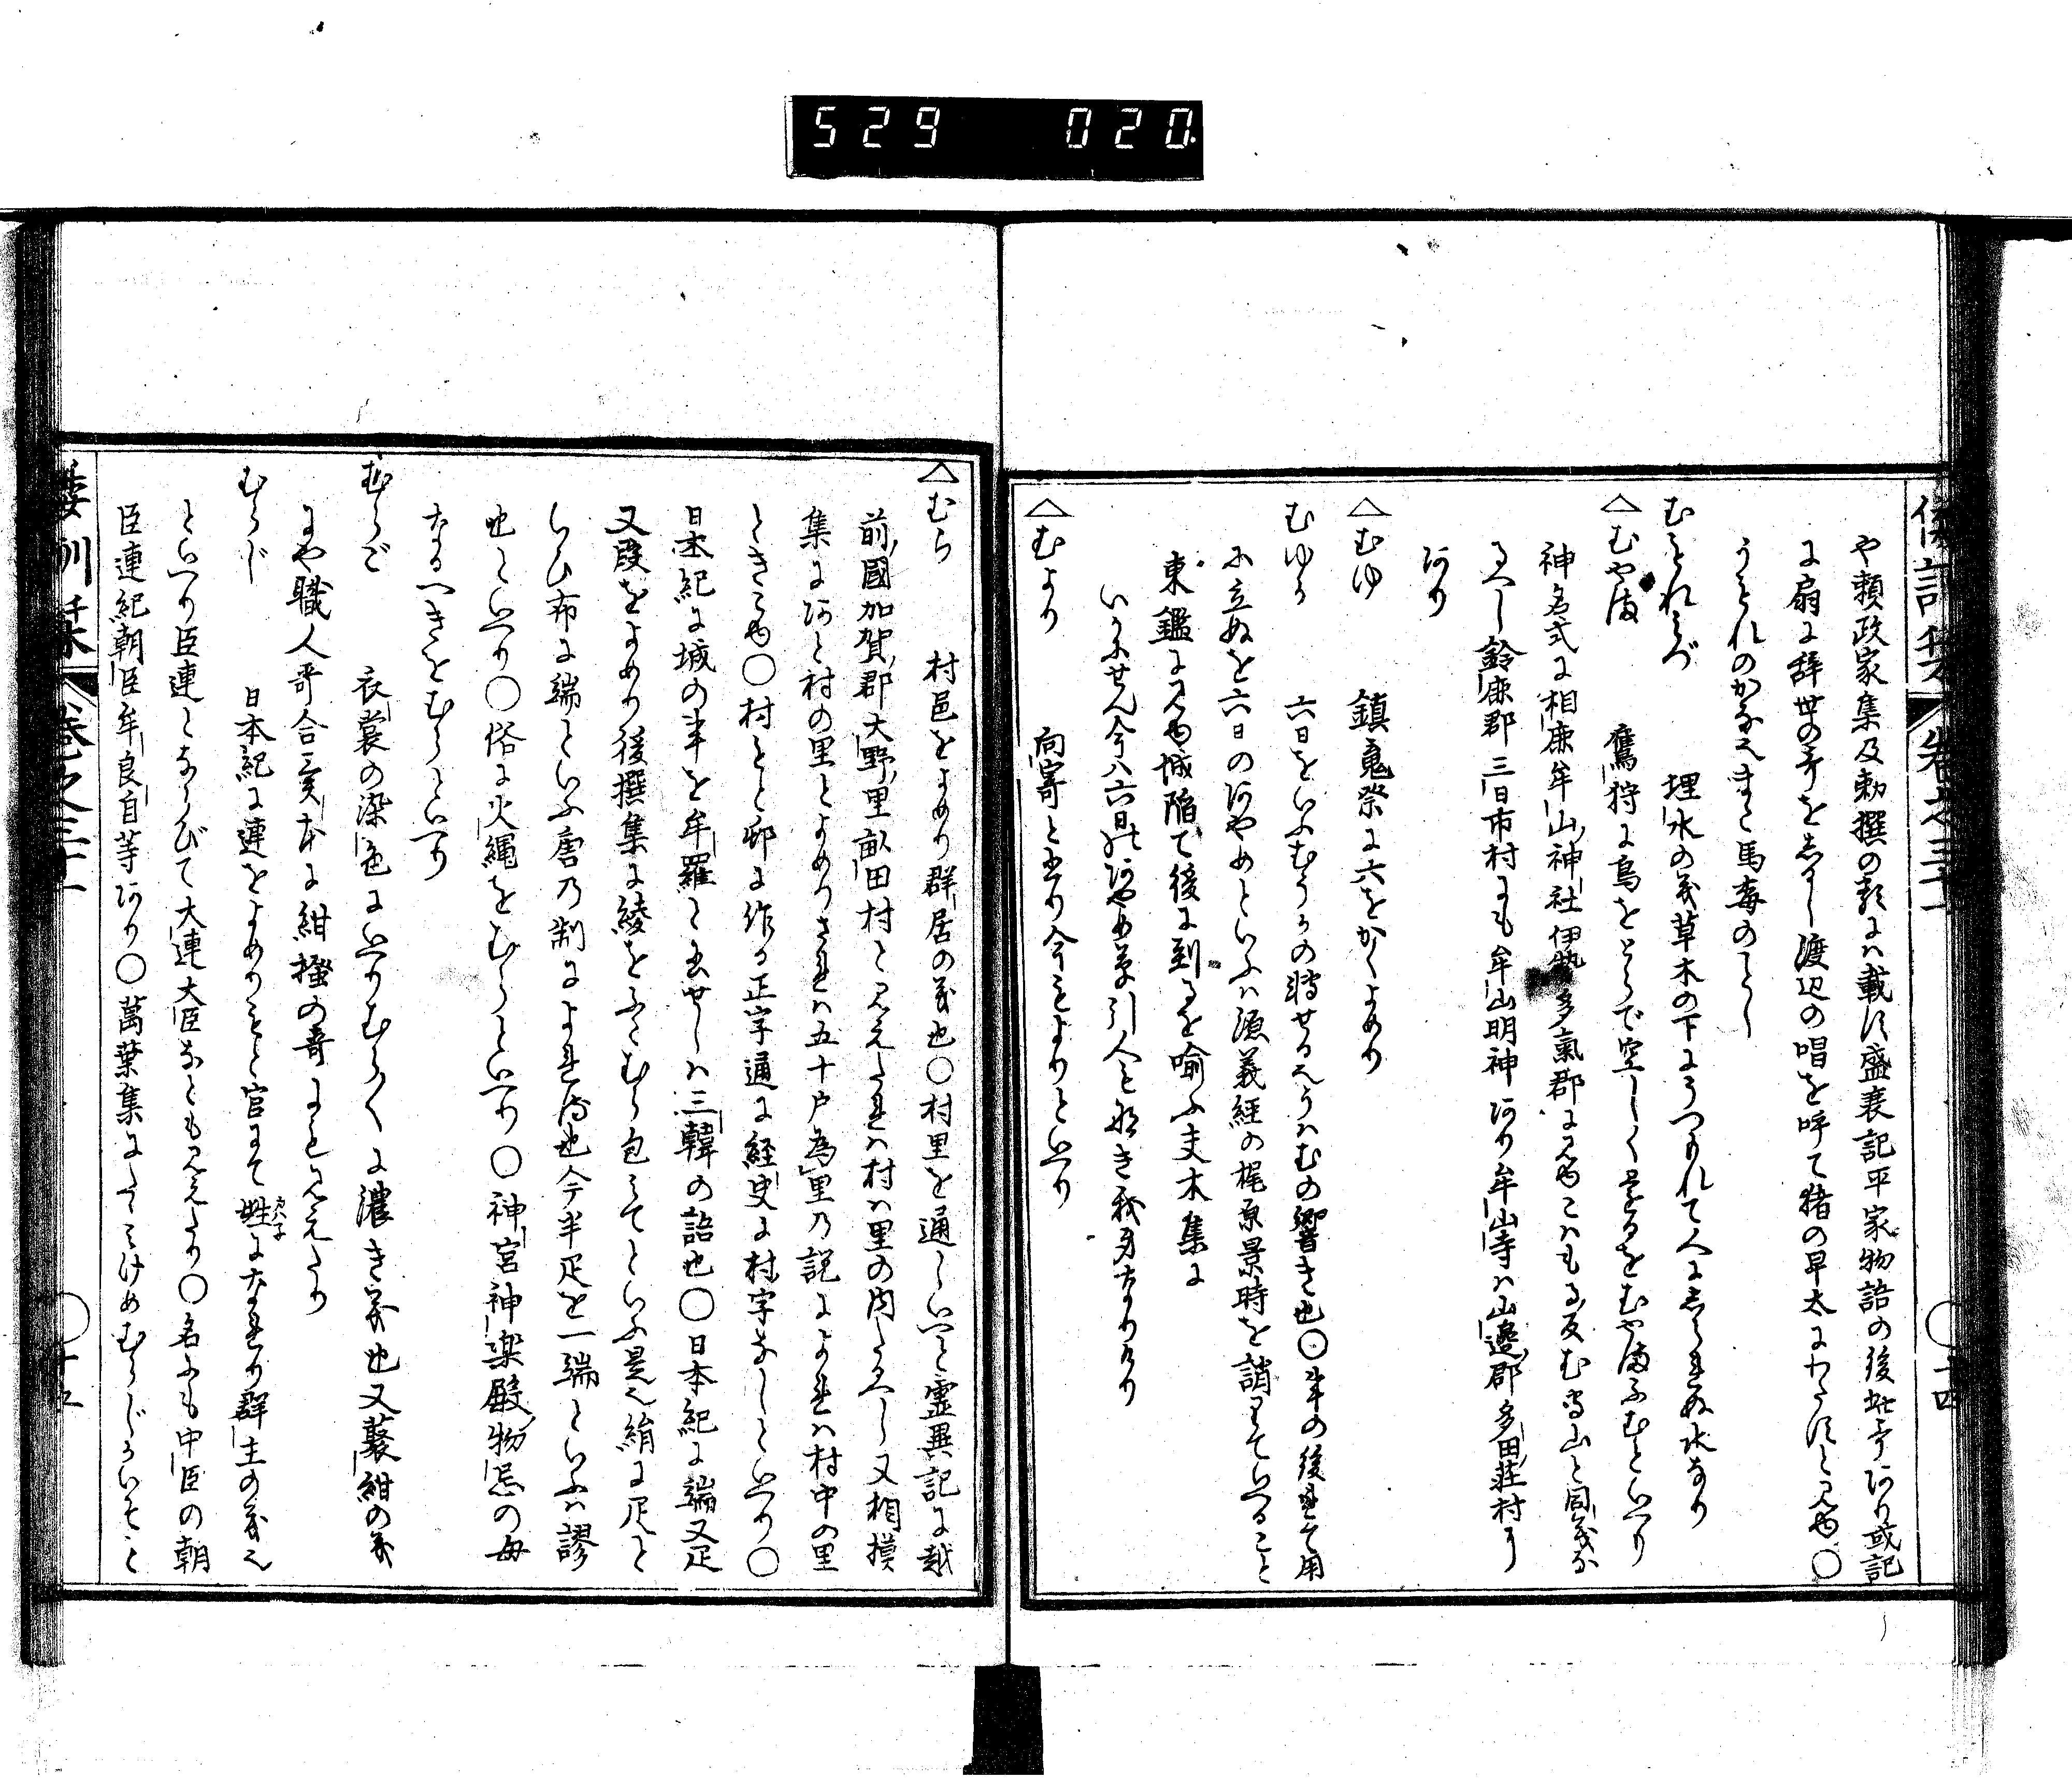 529 020
や頼政家集及勅撰の類には載す盛衰記平家物語の後此哥あり或記
に扇に辞世の哥をしるし渡辺の唱を呼て猪の早太にわたすと見ゆ○
うもれのかな也また馬毒のことし
むもれみづ 埋水の義草木の下にうつもれて人にしられぬ水なり
△むやま 鷹狩に鳥をとらで空しく
神名式に相鹿牟山神社伊勢多氣郡に見ゆこはもる反む
るへし鈴鹿郡三日市村にも牟山明神あり牟山寺は山邉郡多田荘村に
あり
△むゆ 鎮魂祭に六をかくよめり
むゆか 六日をいふむうかの轉せる也うはむの響き也○事の後
に立ぬを六日のあやめといふは源義経の梶原景時を誚りていへること
東鑑に見ゆ城陥て後に到るを喩ふ夫木集に
いかにせん今は六日のあやめ草引人も
△むより 向寄と書り今もよりといへり
倭訓栞 巻之三十一 ○十四
△むら 村邑をよめり群居の義也○村里を通しいへり霊異記に越
前國加賀郡大野里畝田村と見えたれは村は里の内なるへし又相摸
集にあと村の里とよめりされは五十戸為里の説によれは村中の里
ときこゆ○村もと邨に作る正字通に経史に村字なしといへり○
日本紀に城の事を牟羅と書せしは三韓の語也○日本紀に端又疋
又段をよめり後撰集に綾をふたむら包みてといふ是也絹に疋と
いひ布に端といふ唐の制によれる也今半疋を一端といふは謬
也といへり○俗に火縄をむらといへり○神宮神楽殿物忌の毎
なるへきをむらといへり
むらご 衣裳の染色にいへりむら〳〵に濃き義也又叢紺の義
にや職人哥合に紺掻の哥にも見えたり
むらじ 日本紀に連をよめりもと官にて姓になれり群主の義也
といへり臣連とならびて大連大臣なとも見えたり○名にも中臣の朝
臣連紀朝臣牟良自等あり○萬葉集に
倭訓栞 巻之三十一 ○十五